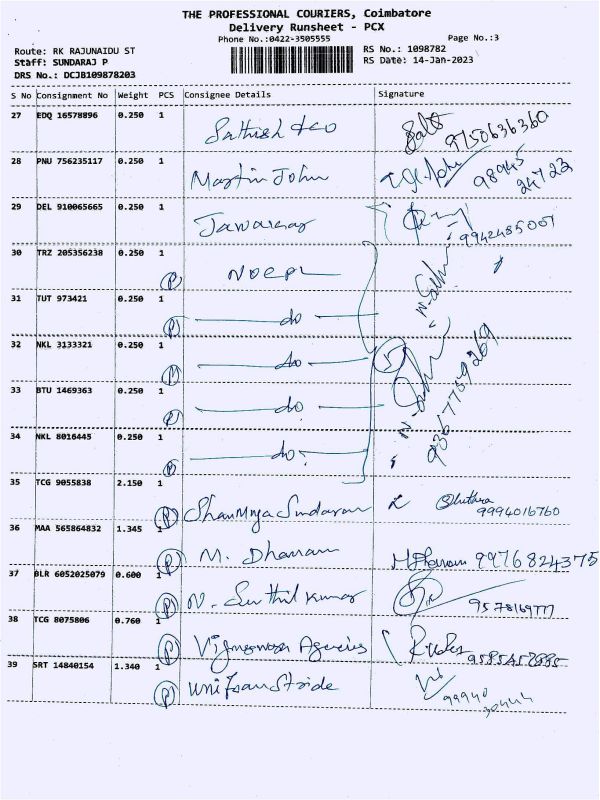 THE PROFESSIONAL COURIERS, Coimbatore
Delivery Runsheet - PCX
Phone No.:0422-3505555
Page No.:3
Route: RK RAJUNAIDU ST
RS No.: 1098782
Staff: SUNDARAJ P
RS Date: 14-Jan-2023
DRS No.: DCJB109878203
S No Consignment No Weight PCS Consignee Details Signature
27 EDQ 16578896 0.250 1 Sathish &co 9750636360
28 PNU 756235117 0.250 1 Martin John 98945
24723
29 DEL 910065665 0.250 1 Jawahar 9942485001
30 TRZ 205356238 0.250 1 (P) NOEPL
31 TUT 973421 0.250 1 (P) do
32 NKL 3133321 0.250 1 (P) do 5
33 BTU 1469363 0.250 1 (P) do 9367759269
34 NKL 8016445 0.250 1 (P) do
35 TCG 9055838 2.150 1 (P) Shanmuga Sundaram
9994016760
36 MAA 565864832 1.345 1 (P) M. Dhanam M Dhanam 9976824375
37 BLR 6052025079 0.600 1 (P) N. Senthil Kumar
38 TCG 8075806 0.760 1 (P) Agencies
39 SRT 14840154 1.340 1 (P) 99940
30444